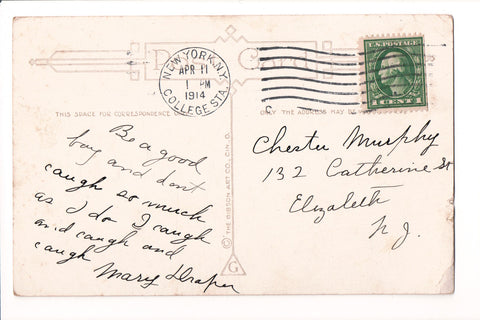 Post Card
NEW YORK, N.Y.
APR 11
1 PM
1914
COLLEGE STA.
U.S. POSTAGE
1 CENT 1
THIS SPACE FOR CORRESPONDENCE
ONLY THE ADDRESS MAY BE
Be a good
boy and dont
caugh so much
as I do I caugh
and caugh and
caugh Mary Draper
© THE GIBSON ART CO., CIN. O.
G
Chester Murphy
132 Catherine St
Elizabeth
N J.